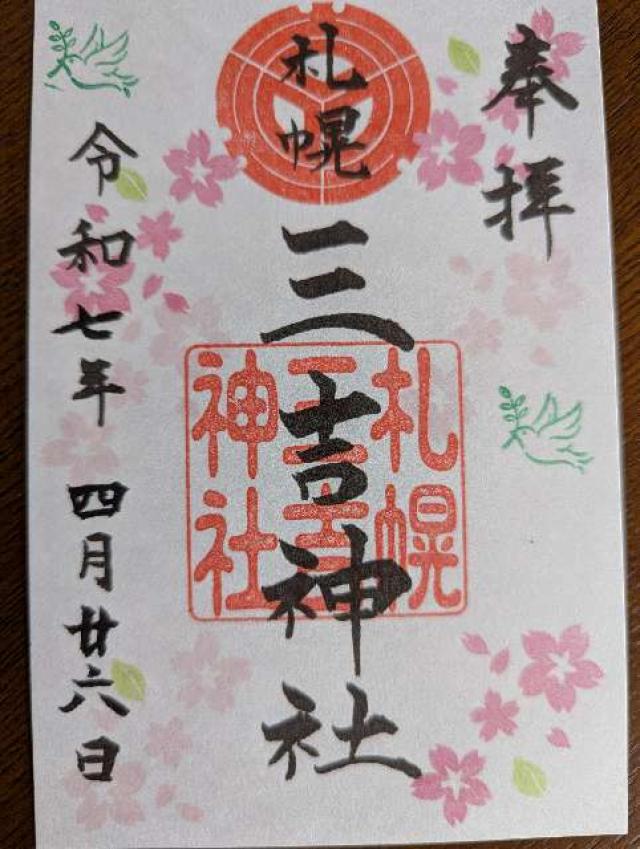 奉拝
札幌
三吉神社
札幌
三吉
神社
令和七年四月廿六日